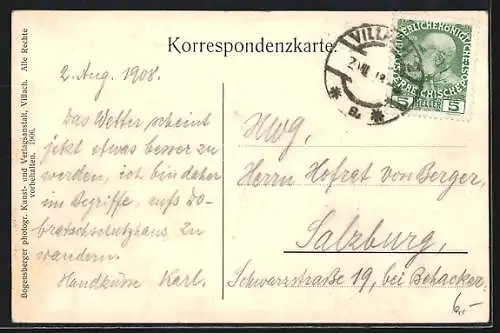 Korrespondenzkarte
VILLACH
a.
KAISERLICHE KÖNIGLICHE
5 HELLER 5
Bogensberger photogr. Kunst- und Verlagsanstalt, Villach. Alle Rechte
vorbehalten. 1906.
2. Aug. 1908.
Das Wetter scheint
jetzt etwas besser zu
werden, ich bin daher
im Begriffe, aufs Do-
bratschschutzhaus zu
wandern.
Handküsse Karl.
HWG,
Herrn Hofrat von Berger,
Salzburg,
Schwarzstraße 19, bei Behacker.
6.-